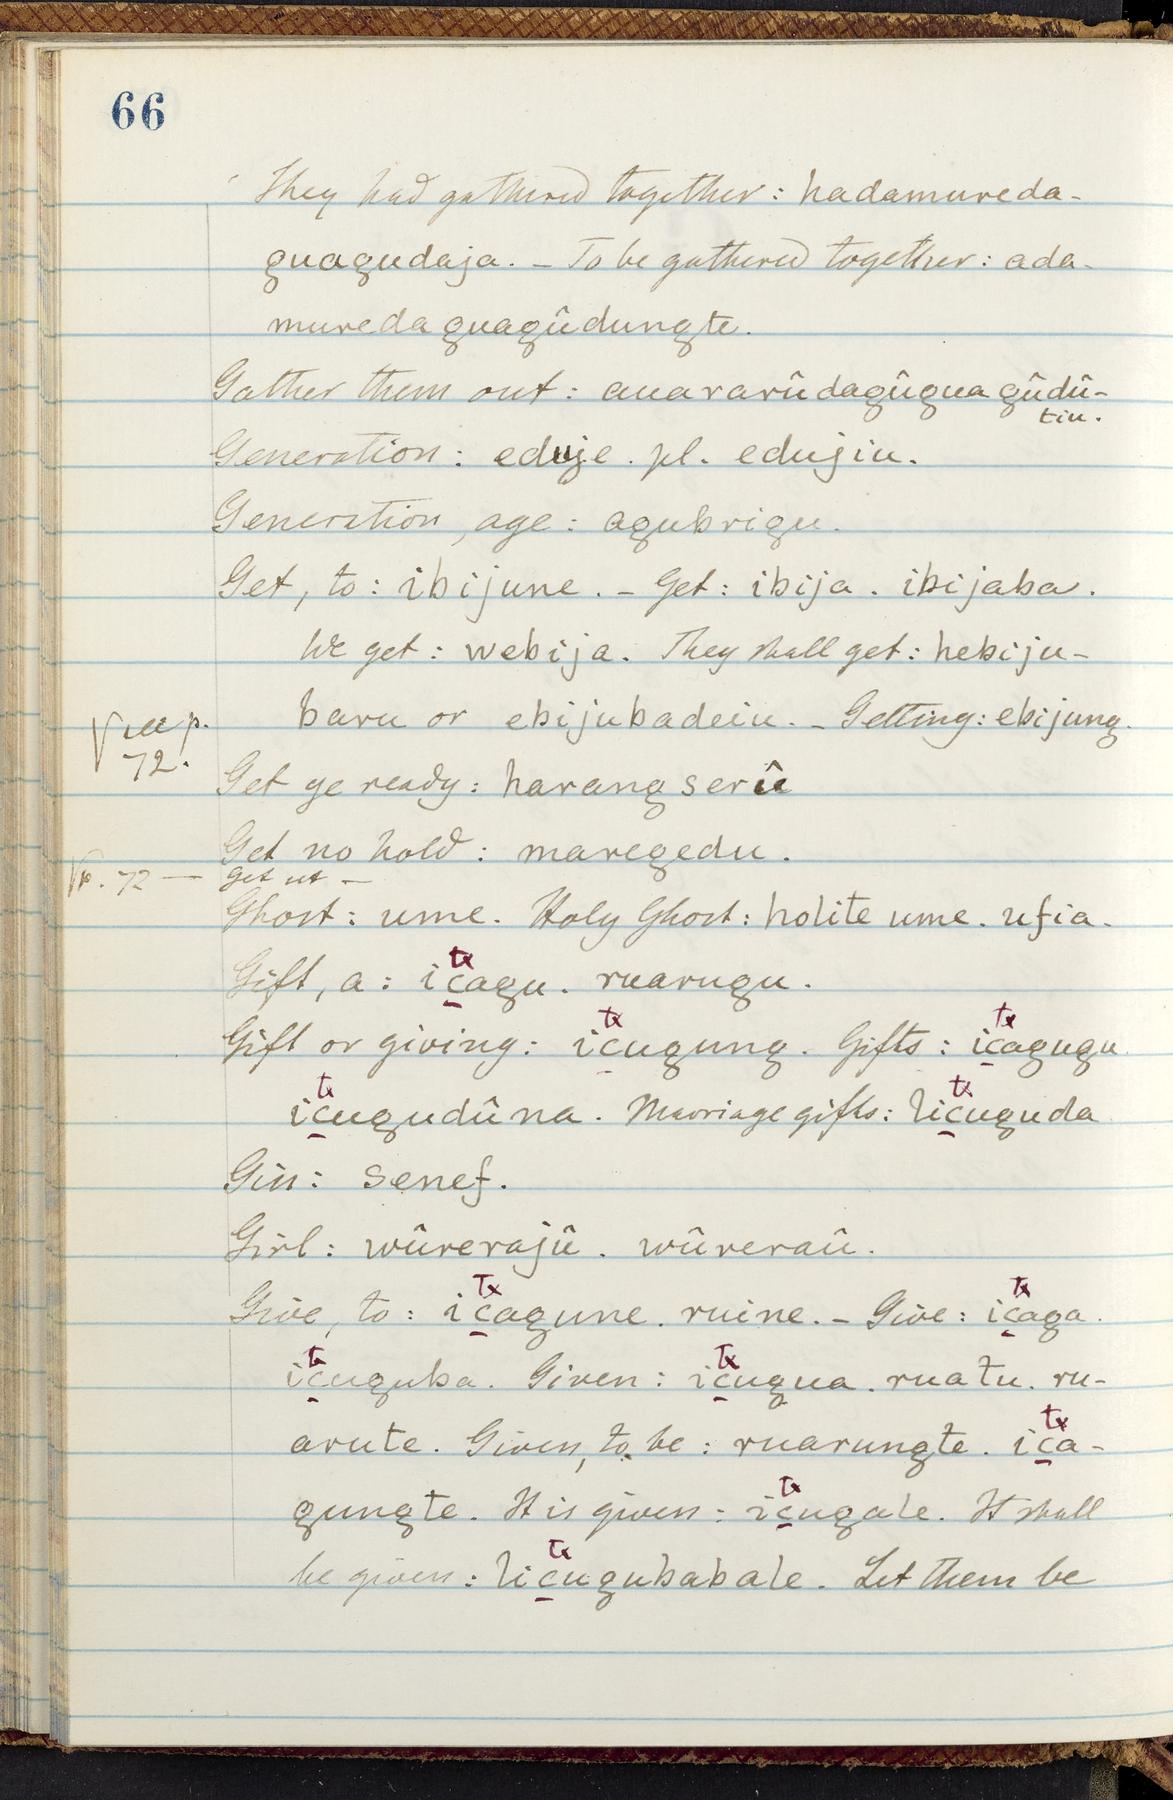 66
They had gathered together: hadamureda-
guagudaja. – To be gathered together: ada-
mureda guagûdungte.
Gather them out: auararûdagûgua gûdû-
tiu.
Generation: eduje. pl. edujiu.
Generation, age: agubrigu.
Get, to: ibijune. – Get: ibija. ibijaba.
We get: webija. They shall get: hebiju-
baru or ebijubadeiu. – Getting: ebijung.
√ see p.
72.
Get ye ready: harang serû
Get no hold: maregedu.
√p. 72 — get ut —
Ghost: ume. Holy Ghost: holite ume. ufia.
Gift, a: içagu. ruarugu.
tx
Gift or giving: içugung. Gifts: içagugu
tx tx
içugudûna. Marriage gifts: liçuguda
tx tx
Gin: senef.
Girl: wûrerajû. wûreraû.
Give, to: içagune. ruine. – Give: içaga.
tx tx
içuguba. Given: içugua. ruatu. ru-
tx tx
arute. Given, to be: ruarungte. iça-
tx
gungte. It is given: içugale. It shall
tx
be given: liçugubabale. Let them be
tx